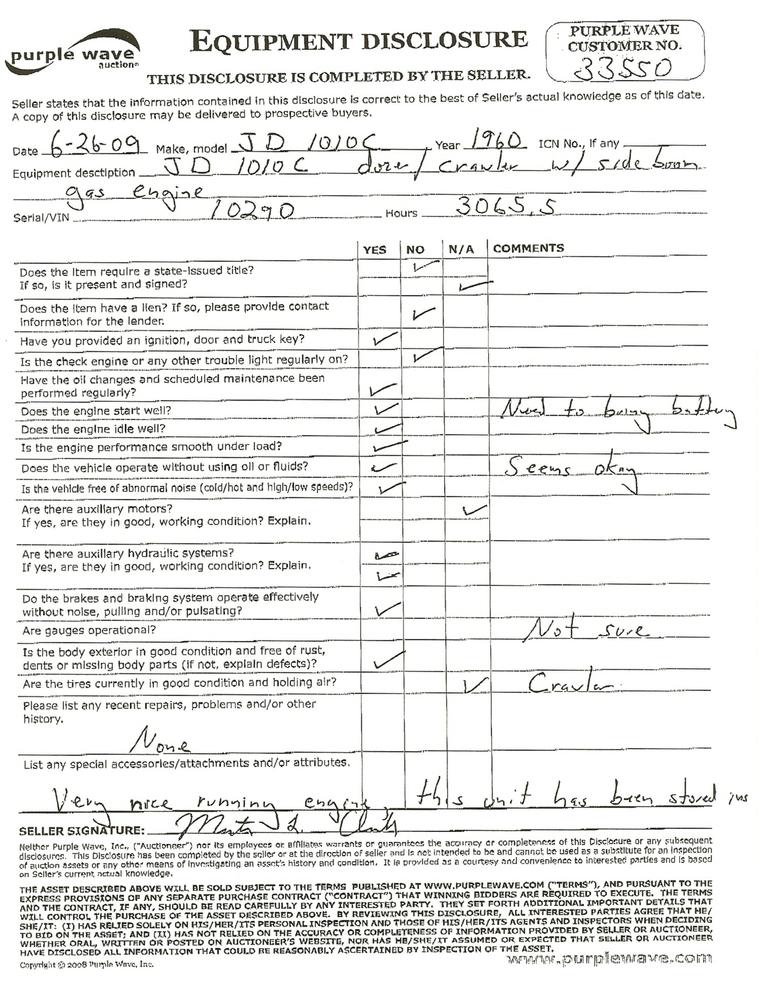 purple wave
auction®
EQUIPMENT DISCLOSURE
PURPLE WAVE
CUSTOMER NO.
33550
THIS DISCLOSURE IS COMPLETED BY THE SELLER.
Seller states that the information contained in this disclosure is correct to the best of Seller's actual knowledge as of this date.
A copy of this disclosure may be delivered to prospective buyers.
Date 6-26-09 Make, model JD 1010C Year 1960 ICN No., if any
Equipment desctiption JD 1010C dozer/crawler w/ side boom
gas engine
Serial/VIN 10290 Hours 3065.5
YES NO N/A COMMENTS
Does the item require a state-issued title?
If so, is it present and signed?
Does the item have a lien? If so, please provide contact
information for the lender.
Have you provided an ignition, door and truck key?
Is the check engine or any other trouble light regularly on?
Have the oil changes and scheduled maintenance been
performed regularly?
Does the engine start well? Need to bring battery
Does the engine idle well?
Is the engine performance smooth under load?
Does the vehicle operate without using oil or fluids? Seems okay
Is the vehicle free of abnormal noise (cold/hot and high/low speeds)?
Are there auxillary motors?
If yes, are they in good, working condition? Explain.
Are there auxillary hydraulic systems?
If yes, are they in good, working condition? Explain.
Do the brakes and braking system operate effectively
without noise, pulling and/or pulsating?
Are gauges operational? Not sure
Is the body exterior in good condition and free of rust,
dents or missing body parts (if not, explain defects)?
Are the tires currently in good condition and holding air? Crawler
Please list any recent repairs, problems and/or other
history.
None
List any special accessories/attachments and/or attributes.
Very nice running engine, this unit has been stored ins
SELLER SIGNATURE:
Neither Purple Wave, Inc., ("Auctioneer") nor its employees or affiliates warrants or guarantees the accuracy or completeness of this Disclosure or any subsequent
disclosures. This Disclosure has been completed by the seller or at the direction of seller and is not intended to be and cannot be used as a substitute for an inspection
of auction assets or any other means of investigating an asset's history and condition. It is provided as a courtesy and convenience to interested parties and is based
on Seller's current actual knowledge.
THE ASSET DESCRIBED ABOVE WILL BE SOLD SUBJECT TO THE TERMS PUBLISHED AT WWW.PURPLEWAVE.COM ("TERMS"), AND PURSUANT TO THE
EXPRESS PROVISIONS OF ANY SEPARATE PURCHASE CONTRACT ("CONTRACT") THAT WINNING BIDDERS ARE REQUIRED TO EXECUTE. THE TERMS
AND THE CONTRACT, IF ANY, SHOULD BE READ CAREFULLY BY ANY INTERESTED PARTY. THEY SET FORTH ADDITIONAL IMPORTANT DETAILS THAT
WILL CONTROL THE PURCHASE OF THE ASSET DESCRIBED ABOVE. BY REVIEWING THIS DISCLOSURE, ALL INTERESTED PARTIES AGREE THAT HE/
SHE/IT: (I) HAS RELIED SOLELY ON HIS/HER/ITS PERSONAL INSPECTION AND THOSE OF HIS/HER/ITS AGENTS AND INSPECTORS WHEN DECIDING
TO BID ON THE ASSET; AND (II) HAS NOT RELIED ON THE ACCURACY OR COMPLETENESS OF INFORMATION PROVIDED BY SELLER OR AUCTIONEER,
WHETHER ORAL, WRITTEN OR POSTED ON AUCTIONEER'S WEBSITE, NOR HAS HE/SHE/IT ASSUMED OR EXPECTED THAT SELLER OR AUCTIONEER
HAVE DISCLOSED ALL INFORMATION THAT COULD BE REASONABLY ASCERTAINED BY INSPECTION OF THE ASSET.
www.purplewave.com
Copyright © 2008 Purple Wave, Inc.